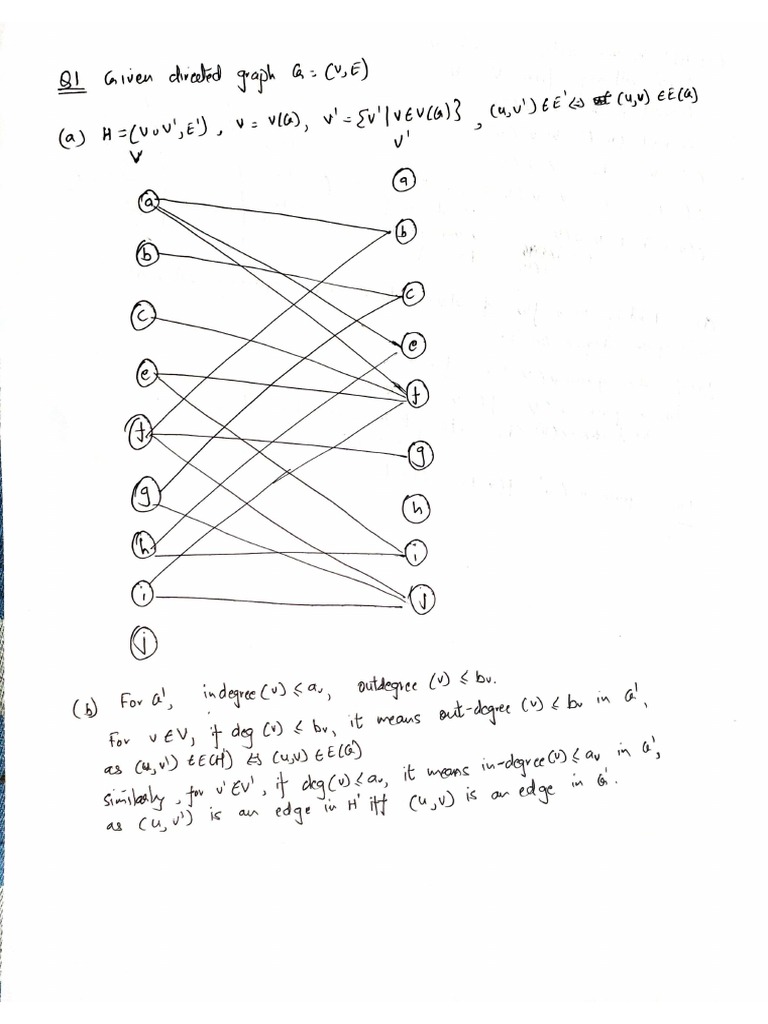 Q1 Given directed graph G = (V, E)
(a) H = (V ∪ V', E'), V = V(G), V' = {v' | v ∈ V(G)}, (u, v') ∈ E' ⇔ (u, v) ∈ E(G)
V V'
a
a
b
b
c
c
e
e
f
f
g
g
h
h
i
i
j
j
(b) For G', indegree(v) ⩽ av, outdegree (v) ⩽ bv.
For v ∈ V, if deg (v) ⩽ bv, it means out-degree (v) ⩽ bv in G',
as (u, v') ∈ E(H') ⇔ (u,v) ∈ E(G')
similarly, for v' ∈ V', if deg(v) ⩽ av, it means in-degree(v) ⩽ av in G',
as (u, v') is an edge in H' iff (u, v) is an edge in G'.